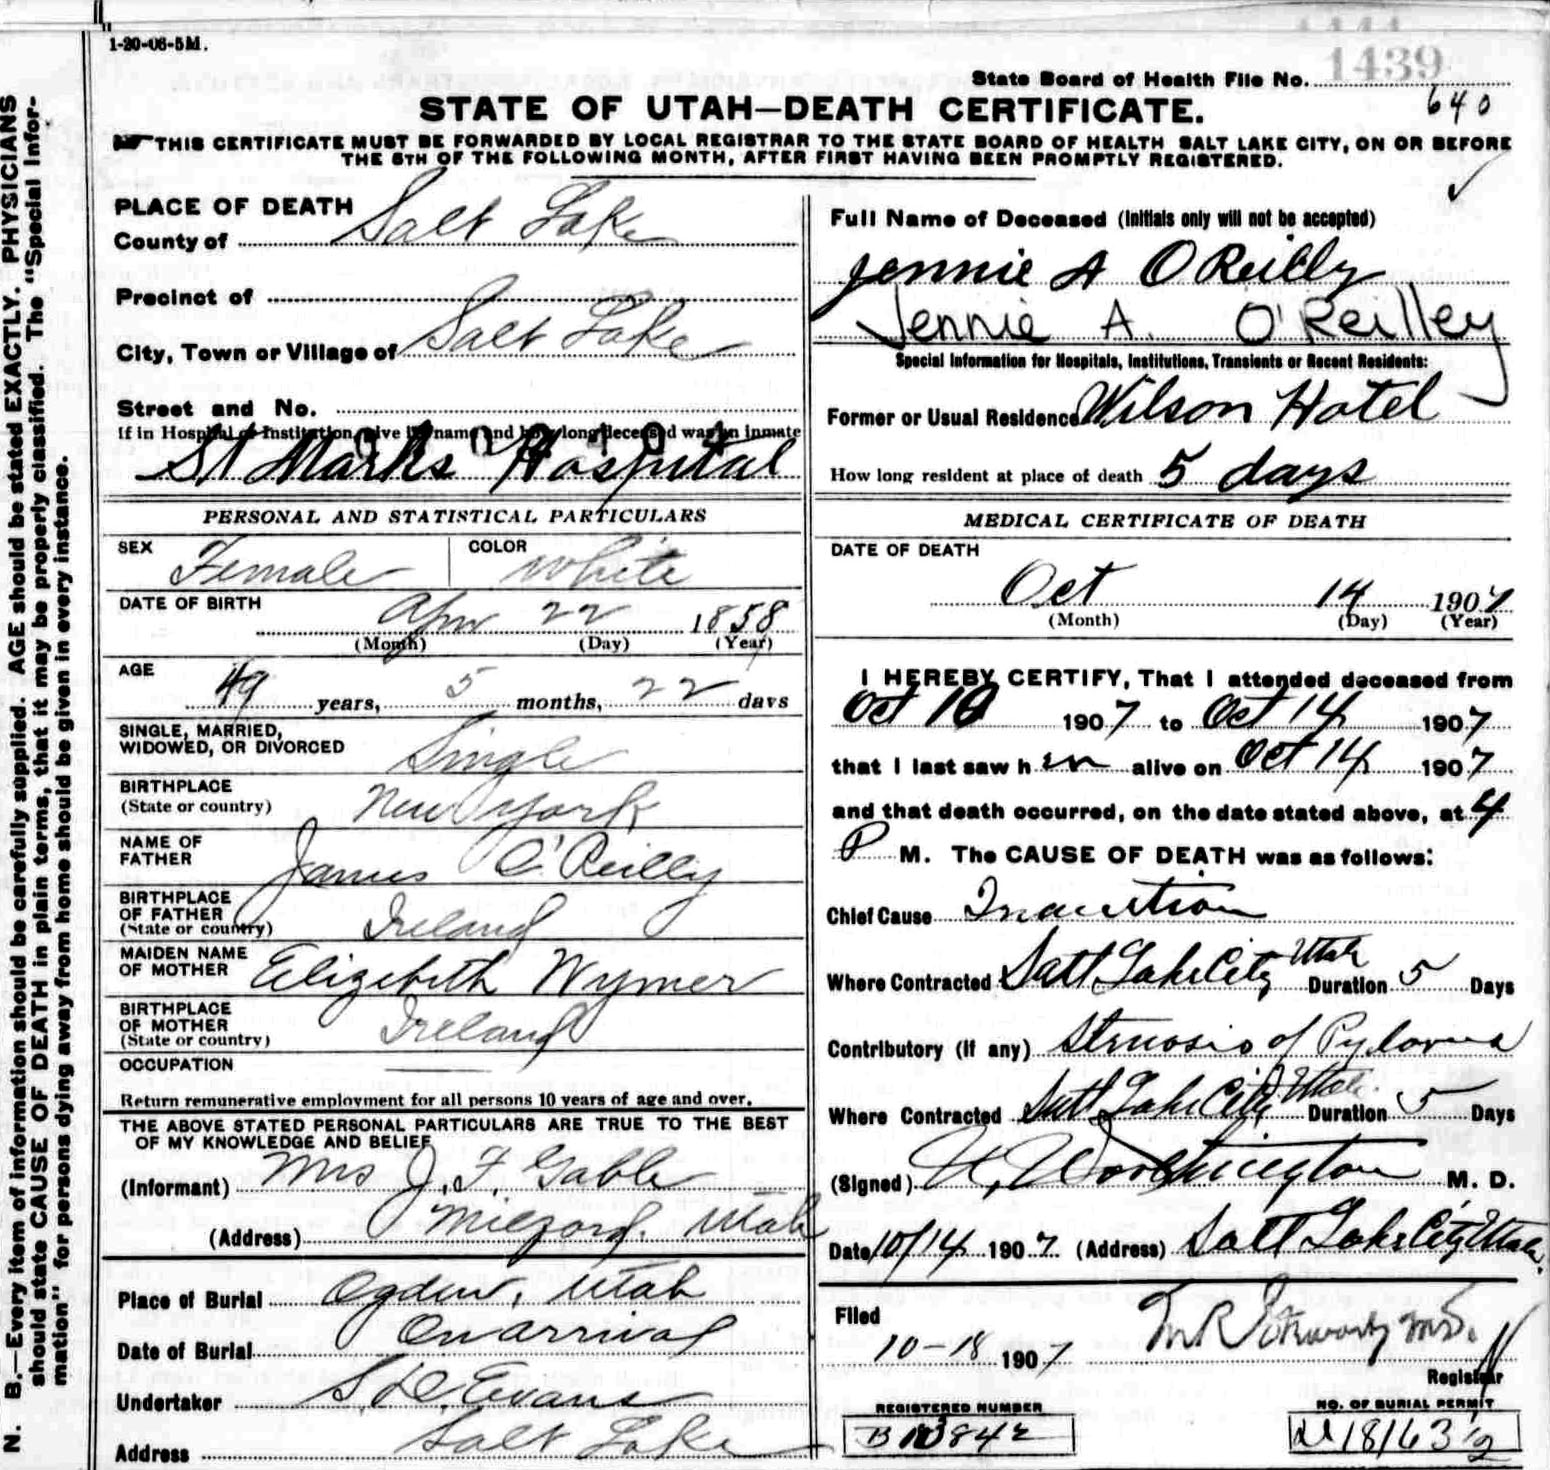 1-20-06-5M.
1439
State Board of Health File No.
640
STATE OF UTAH—DEATH CERTIFICATE.
THIS CERTIFICATE MUST BE FORWARDED BY LOCAL REGISTRAR TO THE STATE BOARD OF HEALTH SALT LAKE CITY, ON OR BEFORE
THE 5TH OF THE FOLLOWING MONTH, AFTER FIRST HAVING BEEN PROMPTLY REGISTERED.
N. B.—Every item of information should be carefully supplied. AGE should be stated EXACTLY. PHYSICIANS
should state CAUSE OF DEATH in plain terms, that it may be properly classified. The "Special Infor-
mation" for persons dying away from home should be given in every instance.
PLACE OF DEATH
County of Salt Lake
Precinct of
City, Town or Village of Salt Lake
Street and No.
If in Hospital or Institution, give its name and how long deceased was an inmate
St Marks Hospital
PERSONAL AND STATISTICAL PARTICULARS
SEX Female COLOR White
DATE OF BIRTH Apr 22 1858
(Month) (Day) (Year)
AGE 49 years, 5 months, 22 days
SINGLE, MARRIED,
WIDOWED, OR DIVORCED Single
BIRTHPLACE
(State or country) New York
NAME OF
FATHER James O'Reilly
BIRTHPLACE
OF FATHER
(State or country) Ireland
MAIDEN NAME
OF MOTHER Elizibeth Wymer
BIRTHPLACE
OF MOTHER
(State or country) Ireland
OCCUPATION
Return remunerative employment for all persons 10 years of age and over.
THE ABOVE STATED PERSONAL PARTICULARS ARE TRUE TO THE BEST
OF MY KNOWLEDGE AND BELIEF
(Informant) Mrs J. F. Gable
(Address) Milford. Utah
Place of Burial Ogden, Utah
Date of Burial On arrival
Undertaker S. D. Evans
Address Salt Lake
Full Name of Deceased (Initials only will not be accepted)
Jennie A O Reilly
Jennie A. O'Reilley
Special Information for Hospitals, Institutions, Transients or Recent Residents:
Former or Usual Residence Wilson Hotel
How long resident at place of death 5 days
MEDICAL CERTIFICATE OF DEATH
DATE OF DEATH
Oct 14 1907
(Month) (Day) (Year)
I HEREBY CERTIFY, That I attended deceased from
Oct 10 1907 to Oct 14 1907
that I last saw h er alive on Oct 14 1907
and that death occurred, on the date stated above, at 4
P M. The CAUSE OF DEATH was as follows:
Chief Cause Inanition
Where Contracted Salt Lake City Utah Duration 5 Days
Contributory (if any) Stenosis of Pylorus
Where Contracted Salt Lake City Utah. Duration 5 Days
(Signed) Worthington M. D.
Date 10/14 1907. (Address) Salt Lake City Utah.
Filed
10-18 1907
Registrar
REGISTERED NUMBER
NO. OF BURIAL PERMIT